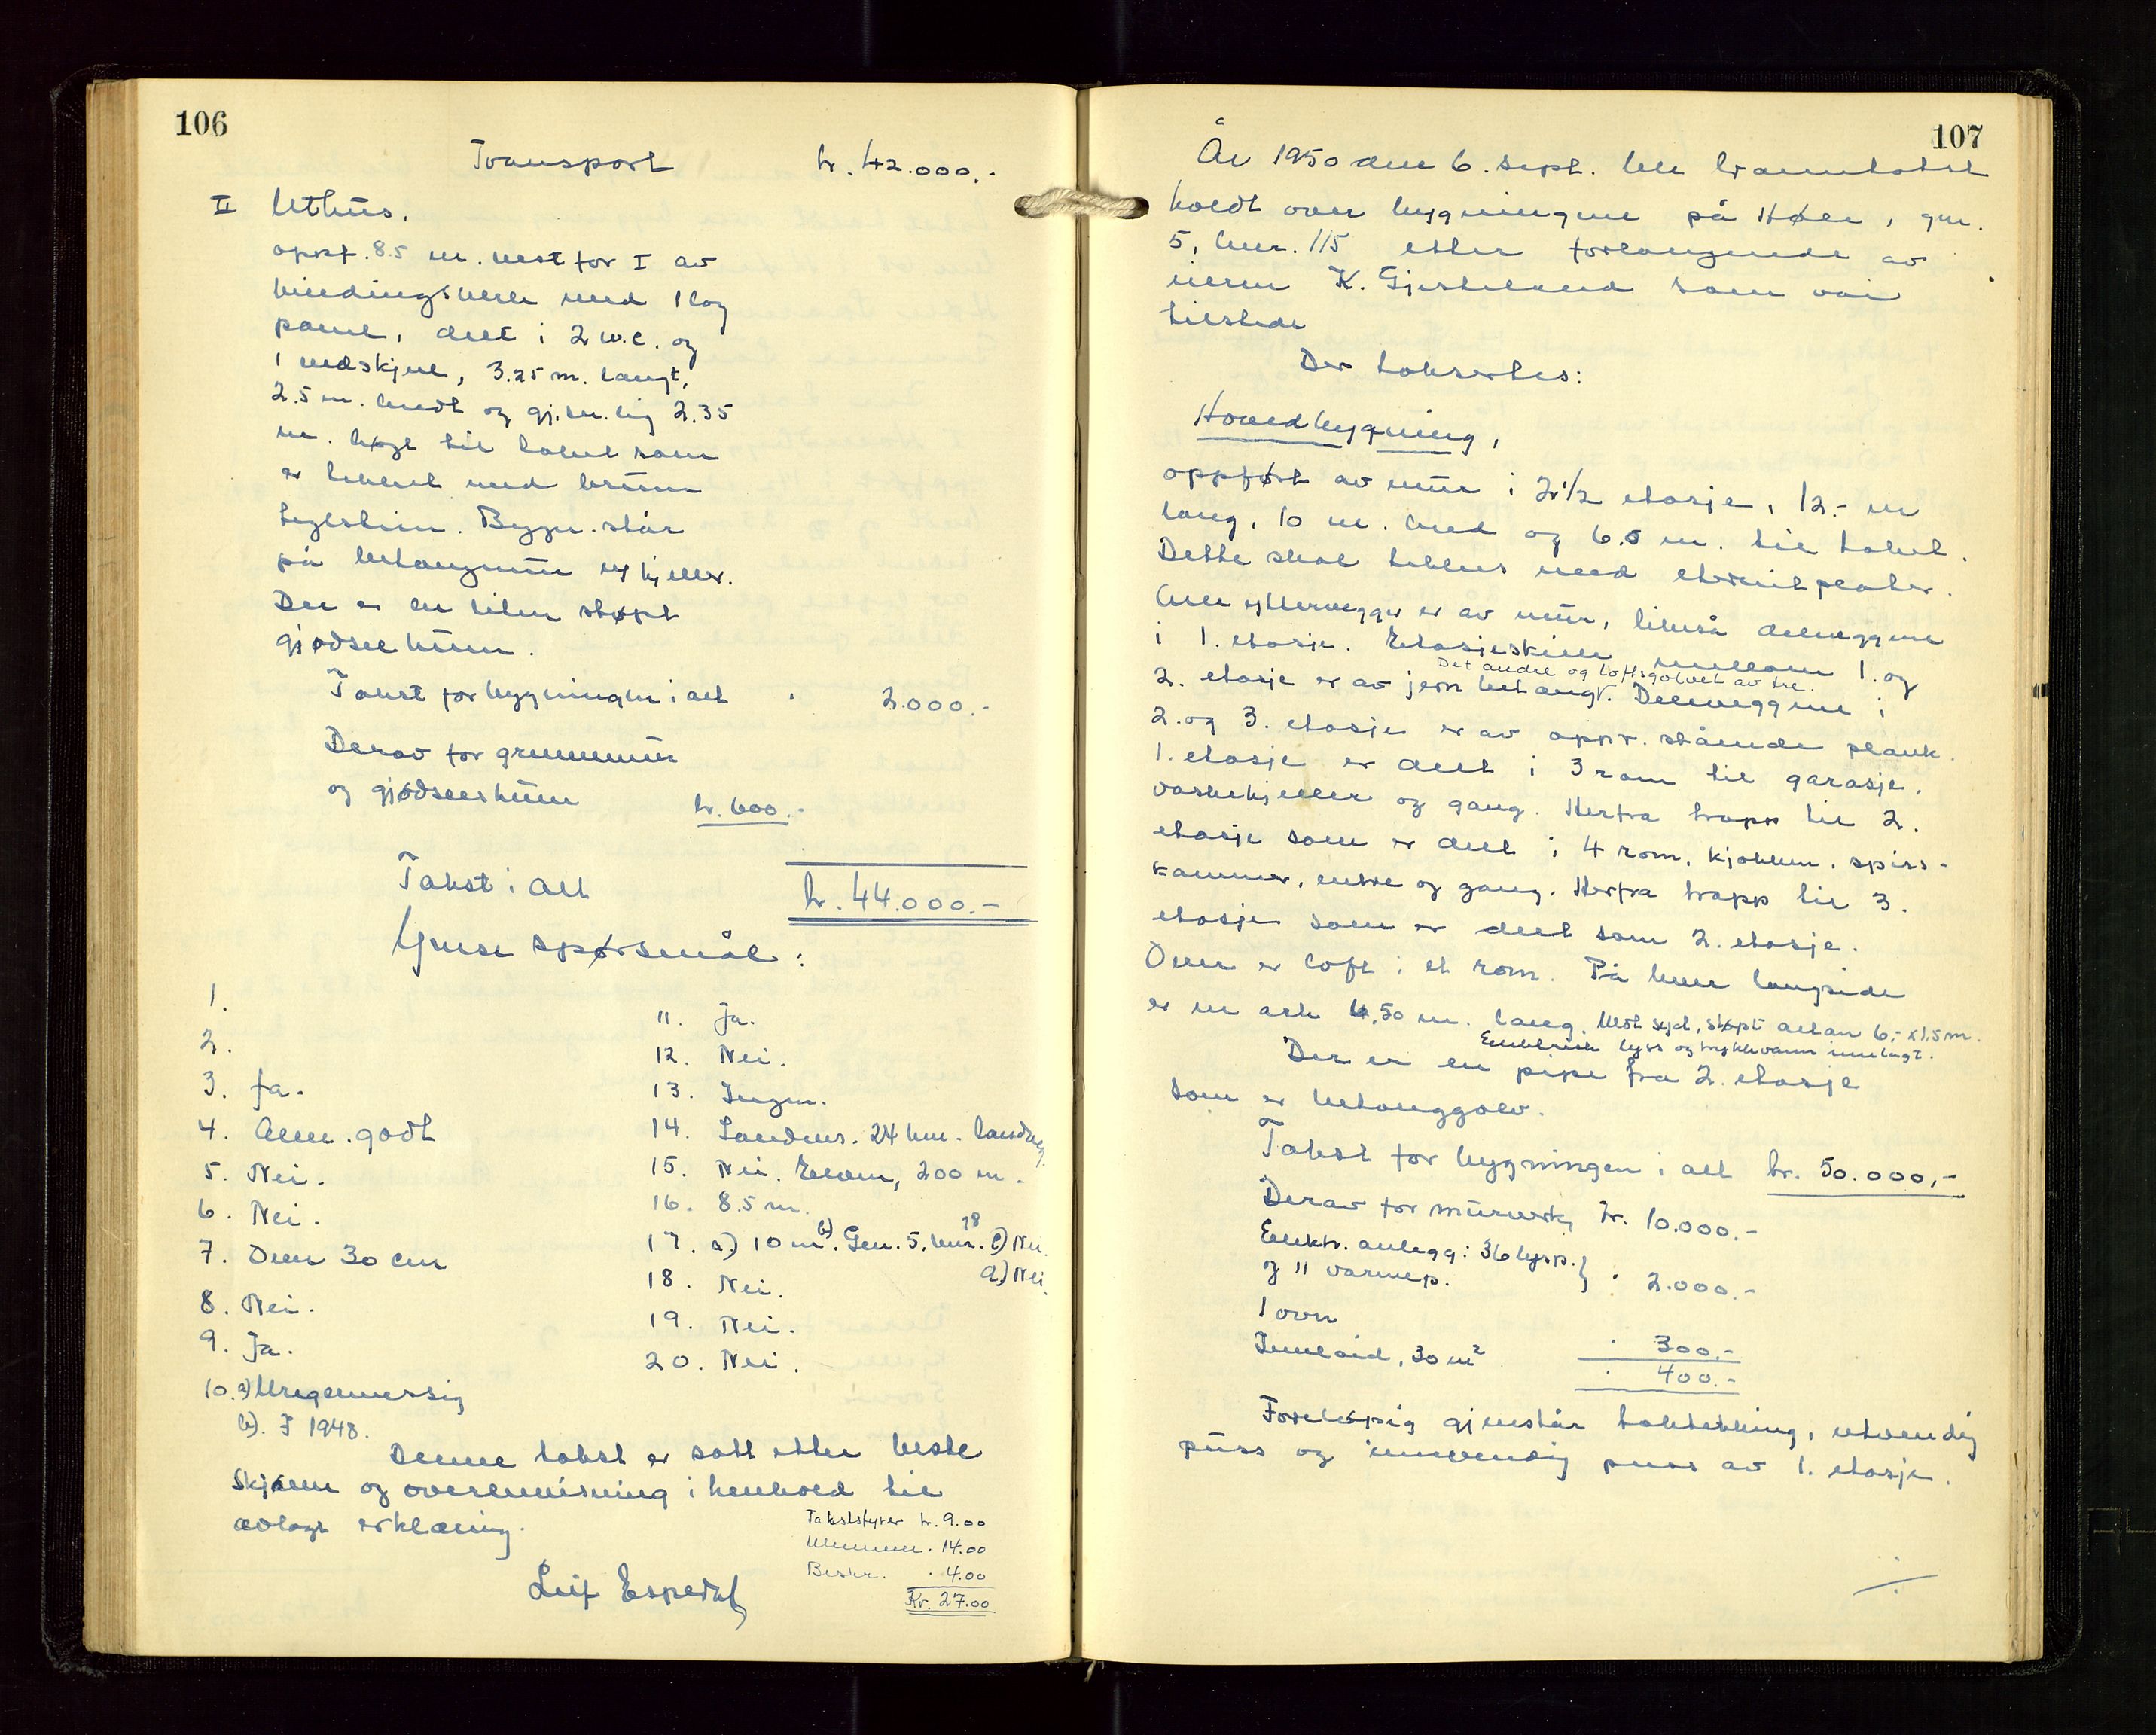 106
Transport kr. 42.000.-
II Uthus,
oppf. 8.5 m. vest for I av
bindingsverk med 1 lag
panel, delt i 2 w.c. og
1 vedskjul, 3.25 m. langt,
2.5 m. bredt og gj.sn.lig 2.35
m. høgt til taket som
er tekket med brune
teglstein. Bygn. står
på betongmur m/kjeller.
Der er en liten støpt
gjødselkum.
Takst for bygningen i alt " 2.000.-
Derav for grunnmur
og gjødselkum kr. 600.-
Takst i alt kr. 44.000.-
Ymse spørsmål:
1.
2.
3. Ja.
4. Alm. godt
5. Nei.
6. Nei.
7. Over 30 cm
8. Nei.
9. Ja.
10. a) Uregelmessig
b). I 1948.
11. Ja.
12. Nei.
13. Ingen.
14. Sandnes. 24 km. landveg
15. Nei. Elven, 200 m.
16. 8.5 m.
17. a) 10 m b). Gnr. 5, bnr. 78 c) Nei.
d) Nei.
18. Nei.
19. Nei.
20. Nei.
Denne takst er satt etter beste
skjønn og overbevisning i henhold til
avlagt erklæring.
Leif Espedal
Takststyrer kr. 9.00
14.00
Beskr. " 4.00
Kr. 27.00
107
År 1950 den 6. sept. ble branntakst
holdt over bygningene på Høle, gnr.
5, bnr. 115 etter forlangende av
eieren K. Gjesteland som var
tilstede
Der taksertes:
Hovedbygning,
oppført av mur i 2 1/2 etasje, 12.- m
lang, 10 m. bred og 6.5 m. til taket.
Dette skal tekkes med eternitplater.
Alle yttervegger er av mur, likeså delveggene
i 1. etasje. Etasjeskille mellom 1. og
Det andre og loftsgolvet av tre.
2. etasje er av jernbetong. Delveggene i
2. og 3. etasje er av oppr. stående plank.
1. etasje er delt i 3 rom til garasje,
vaskekjeller og gang. Herfra trapp til 2.
etasje som er delt i 4 rom, kjøkken, spiss-
kammer, entre og gang. Herfra trapp til 3.
etasje som er delt som 2. etasje.
Over er loft i et rom. På hver langside
er en ark 4.50 m. lang. Mot syd, støpt altan 6,- x 1,5 m.
Elektrisk lyss og trykkvann innlagt.
Der er en pipe fra 2. etasje
som er betonggolv.
Takst for bygningen i alt kr. 50.000,-
Derav for murverk, kr. 10.000.-
Elektr. anlegg: 36 lysp. }
og 11 varmep. } " 2.000.-
1 ovn " 300.-
Innlaid, 30 m² " 400.-
Foreløpig gjenstår taktekking, utvendig
puss og innvendig puss av 1. etasje.
./.